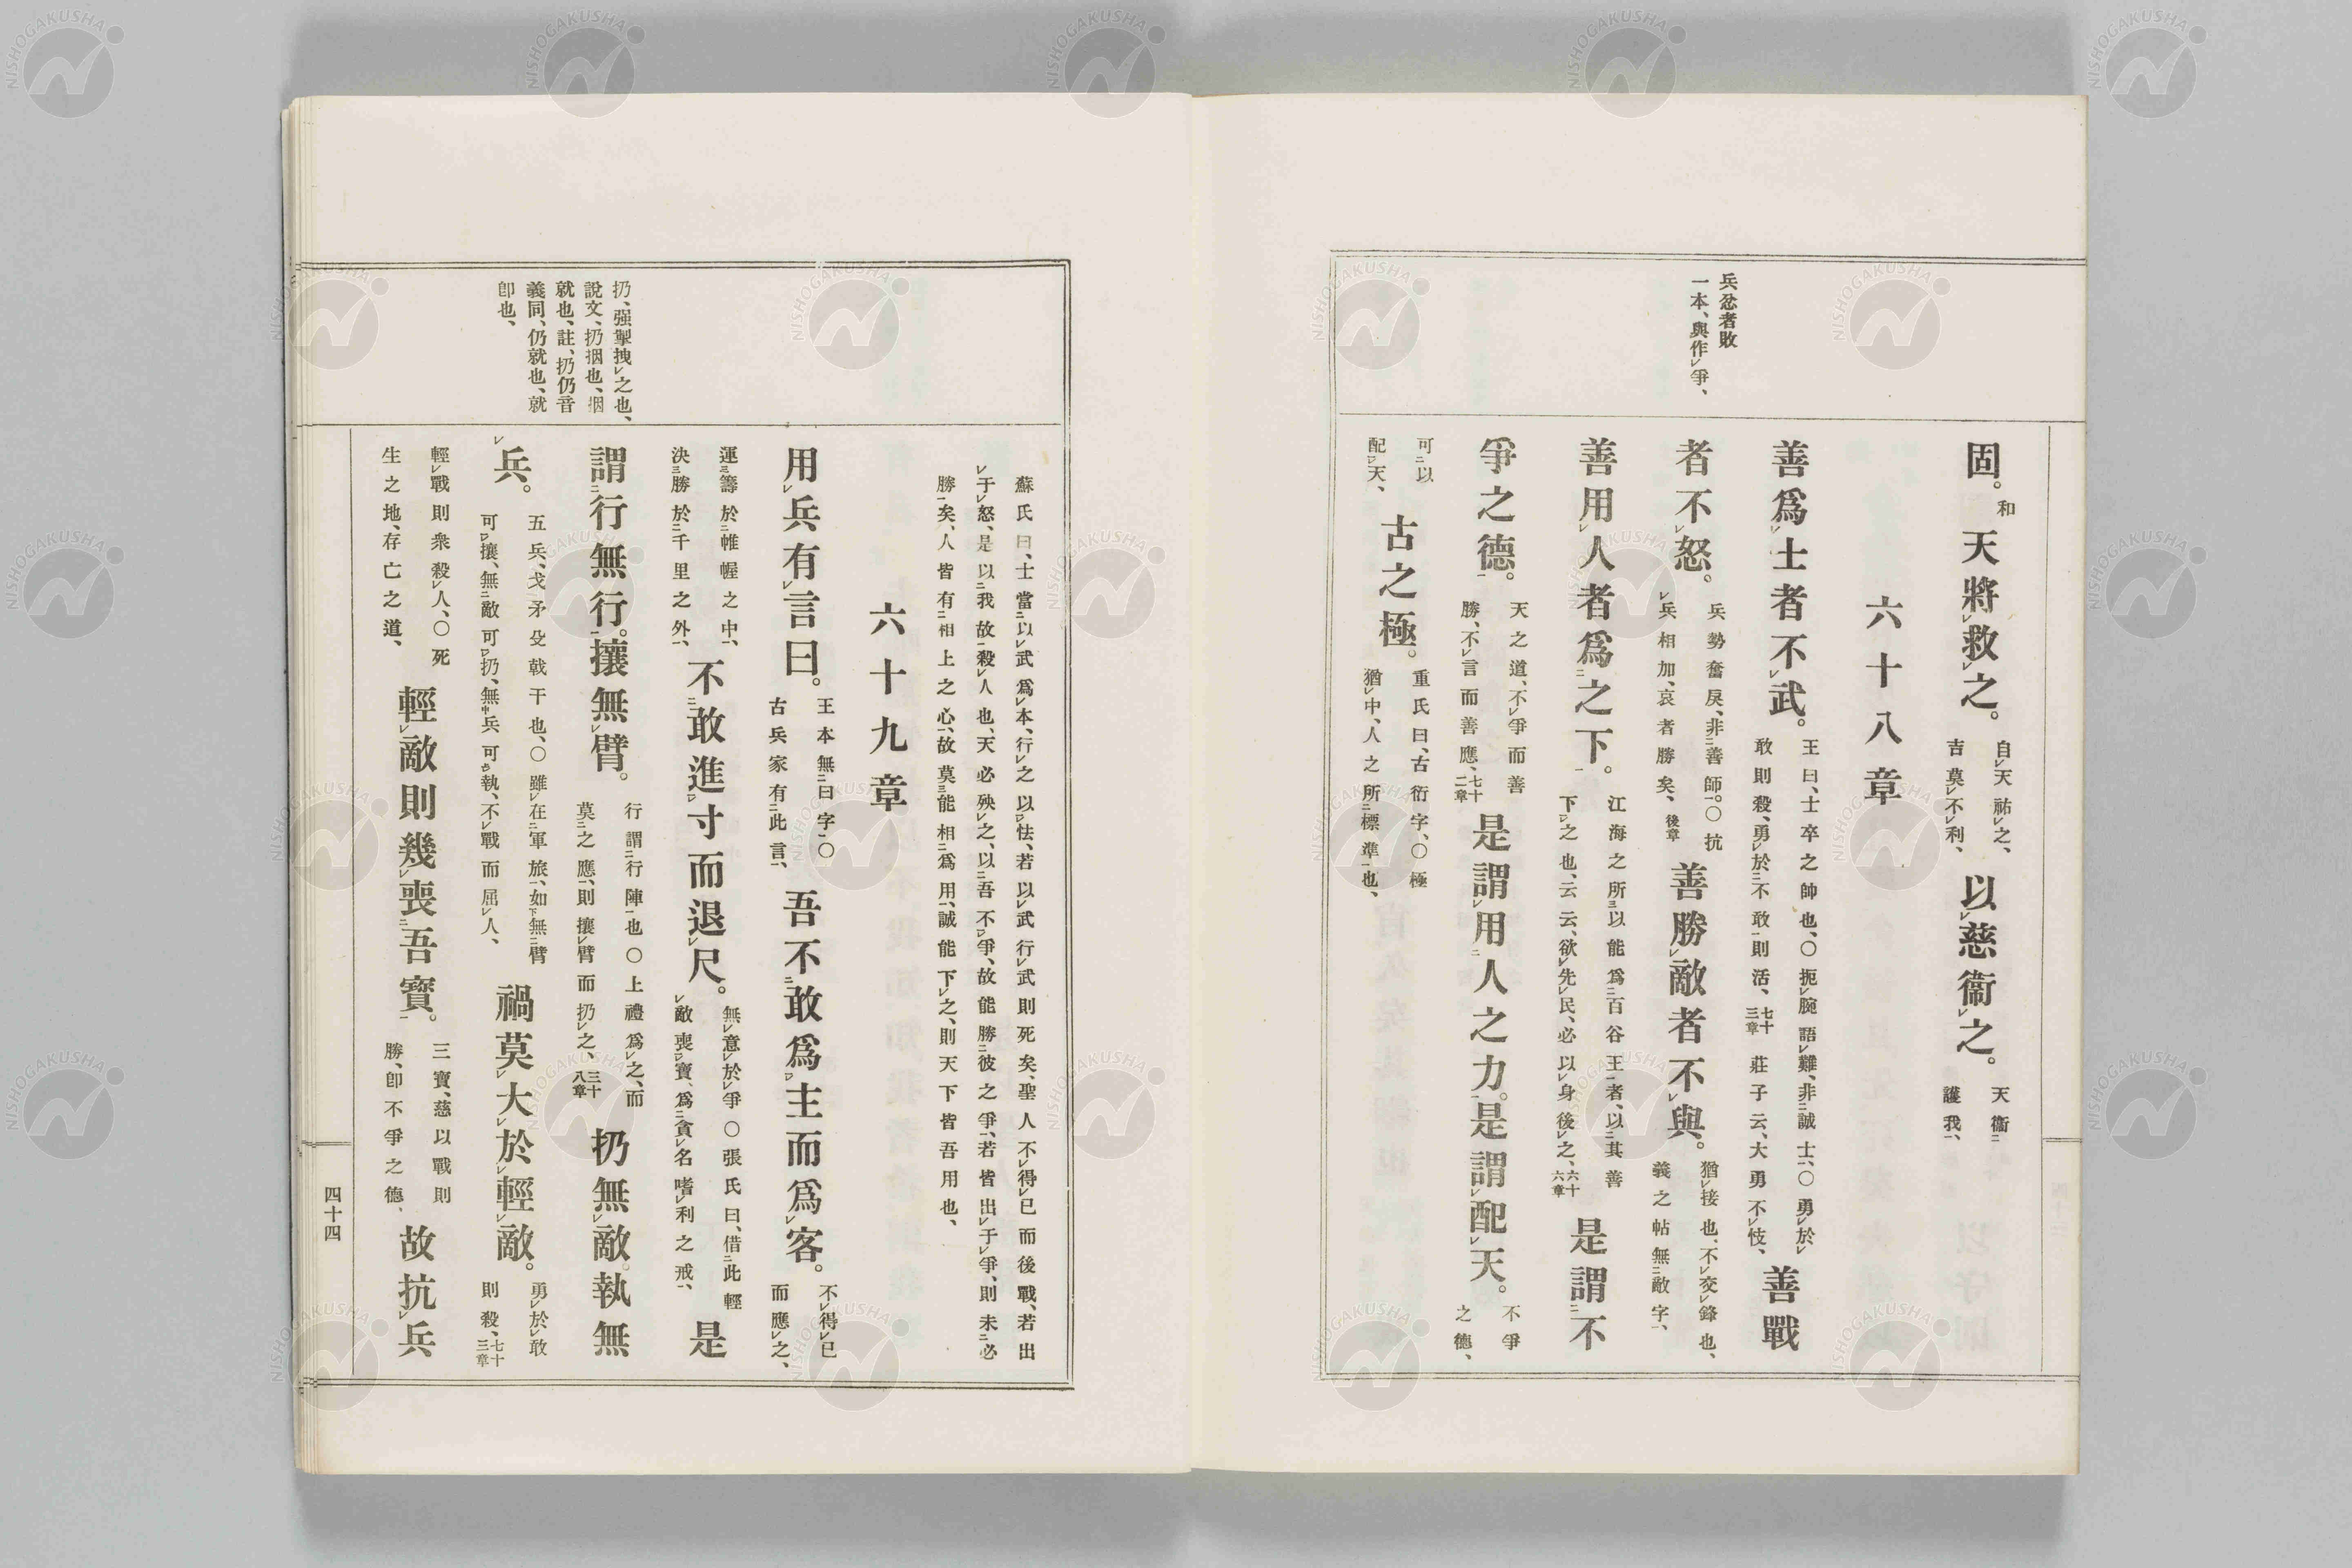 兵忿者敗
一本、與作爭、
固。和天將救之。自天祐之、吉莫不利、以慈衞之。天衞護我、
六十八章
善爲士者不武。王曰、士卒之帥也、〇扼腕語難、非誠士、〇勇於敢則殺、勇於不敢則活、七十三章莊子云、大勇不忮、善戰
者不怒。兵勢奮戾、非善師。〇抗兵相加、哀者勝矣、後章善勝敵者不與。猶接也、不交鋒也、義之帖無敵字、
善用人者爲之下。江海之所以能爲百谷王者、以其善下之也、云云、欲先民、必以身後之、六十六章是謂不
爭之德。天之道、不爭而善勝、不言而善應、七十二章是謂用人之力。是謂配天。不爭之德、
可以配天、古之極。重氏曰、古衍字、〇極猶中、人之所標準也、
扔、强掣拽之也、
說文、扔捆也、捆
就也、註、扔仍音
義同、仍就也、就
卽也、
蘇氏曰、士當以武爲本、行之以怯、若以武行武則死矣、聖人不得已而後戰、若出
于怒、是以我故殺人也、天必殃之、以吾不爭、故能勝彼之爭、若皆出于爭、則未必
勝矣、人皆有相上之心、故莫能相爲用、誠能下之、則天下皆吾用也、
六十九章
用兵有言曰。王本無曰字〇古兵家有此言、吾不敢爲主而爲客。不得已而應之、
運籌於帷幄之中、決勝於千里之外、不敢進寸而退尺。無意於爭〇張氏曰、借此輕敵喪寶、爲貪名嗜利之戒、是
謂行無行。攘無臂。行謂行陣也〇上禮爲之、而莫之應、則攘臂而扔之、三十八章扔無敵。執無
兵。五兵、戈矛殳戟干也、〇雖在軍旅、如無臂可攘、無敵可扔、無兵可執、不戰而屈人、禍莫大於輕敵。勇於敢則殺、七十三章
輕戰則衆殺人、〇死生之地、存亡之道、輕敵則幾喪吾寶。三寶、慈以戰則勝、卽不爭之德、故抗兵
四十四